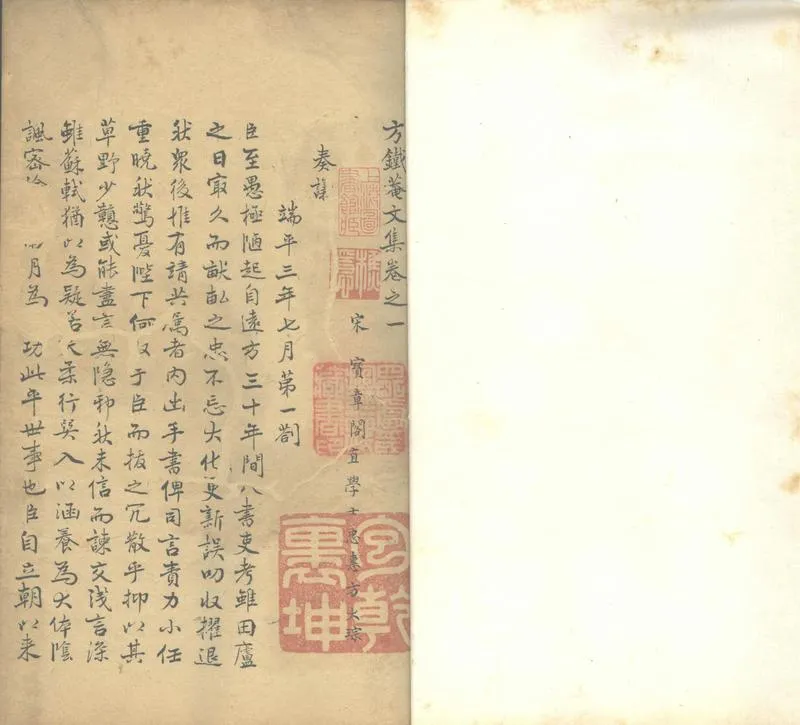 方鐵菴文集卷之一
宋 寶章閣直學士忠惠方大琮
奏議
端平三年七月第一劄
臣至愚極陋起自遠方三十年間八書吏考雖田廬
之日寂久而畎畝之忠不忘大化更新誤叨收擢退
狀衆後惟有請共屬者內出手書俾司言責力小任
重曉狀驚憂陛下何取于臣而拔之冗散乎抑以其
草野少戇或能盡言無隱邪狀未信而諫交淺言深
雖蘇軾猶以為疑若 柔行巽入以涵養為大体陰
諷密 月為 功此平世事也臣自立朝以来
上海圖書館藏
包乾裹坤